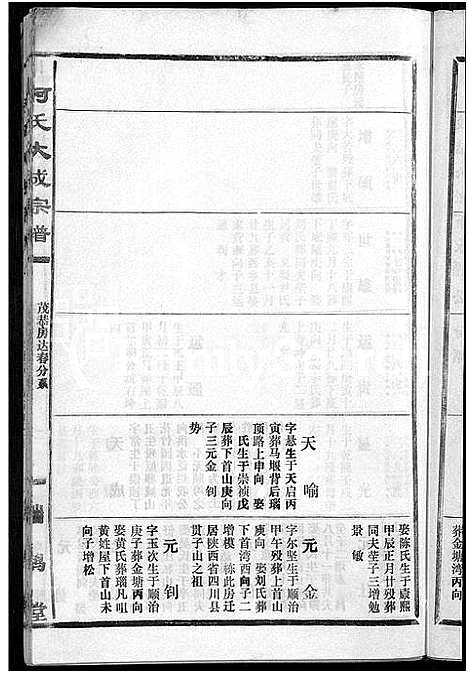 葬金塘湾丙向
天喻
字悬生于天启丙
寅葬马堰背后瑙
顶路上申向 娶
氏生于崇祯戊
辰葬下首山庚向
子三元金 钊
势
娶陈氏生于康熙
甲辰正月廿殁葬
同夫茔子三增勉
景 敏
元金
字尔坚生于顺治
甲午殁葬上首山
庚向 娶刘氏葬
下首湾西向子二
增模 栋此房迁
居陕西省四川县
贯子山之祖
元钊
字玉次生于顺治
庚子葬金塘丙向
娶黄氏葬瑙凡咀
黄姓屋下首山未
向子增松
何氏大成宗谱
茂恭房达春分系
堂